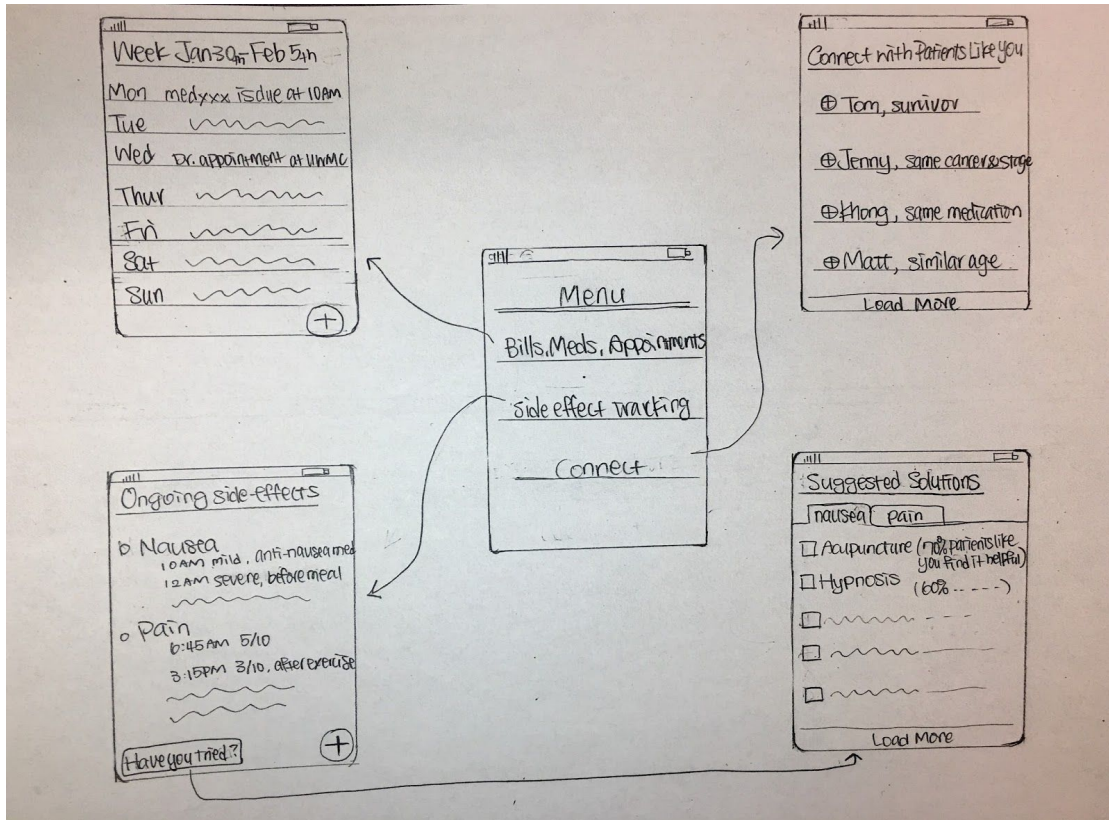 Week Jan 30th-Feb 5th
Mon medxxx is due at 10AM
Tue
Wed Dr. appointment at UWMC
Thur
Fri
Sat
Sun
+
Menu
Bills, Meds, Appointments
side effect tracking
Connect
Connect with Patients Like You
Tom, survivor
Jenny, same cancer & stage
Khong, same medication
Matt, similar age
Load More
Ongoing side-effects
Nausea
10AM mild, anti-nausea med
12AM severe, before meal
Pain
6:45AM 5/10
3:15PM 3/10, after exercise
Have you tried?
+
Suggested Solutions
nausea pain
Acupuncture (70% patients like
you find it helpful)
Hypnosis (60% -----)
Load More